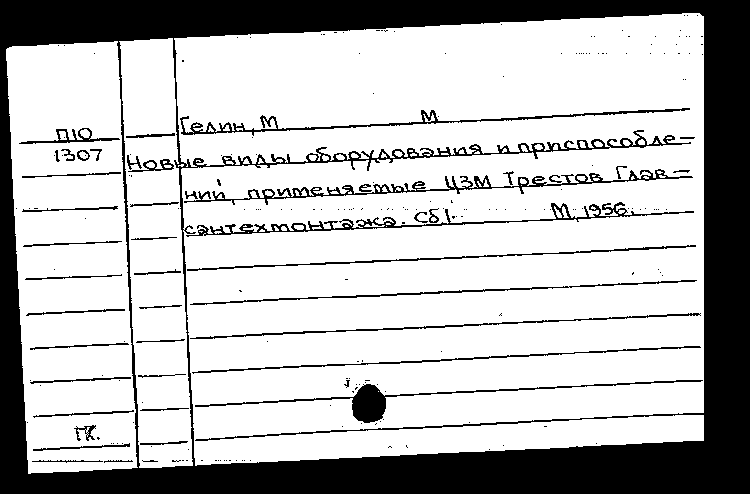 П10
1307
Гелин, М М
Новые виды оборудования и приспособле-
ний, применяемые ЦЗМ Трестов Глав-
сантехмонтажа. Сб 1. М, 1956.
ГК.